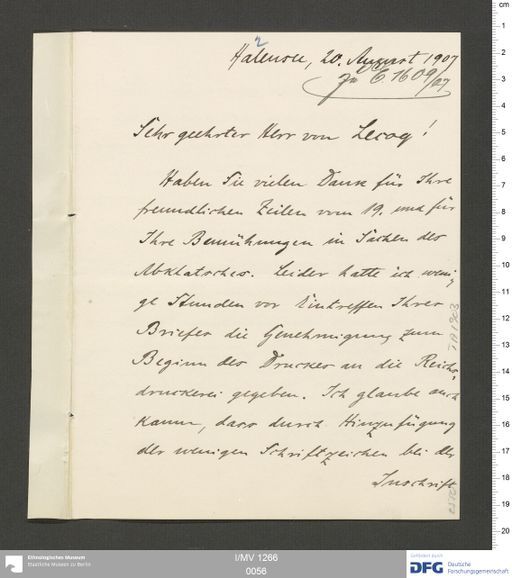 Halensee, 20. August 1907
2
zu E. 1609/07
Sehr geehrter Herr von Lecoq!
Haben Sie vielen Dank für Ihre
freundlichen Zeilen vom 19. und für
Ihre Bemühungen in Sachen des
Abklatsches. Leider hatte ich weni-
ge Stunden vor Eintreffen Ihres
Briefes die Genehmigung zum
Beginn des Druckes an die Reichs-
druckerei gegeben. Ich glaube auch
kaum, dass durch Hinzufügung
der wenigen Schriftzeichen bei der
Inschrift
Ethnologisches Museum
Staatliche Museen zu Berlin
I/MV 1266
0056
Gefördert durch
DFG Deutsche
Forschungsgemeinschaft
cm
1
2
3
4
5
6
7
8
9
10
11
12
13
14
15
16
17
18
19
20